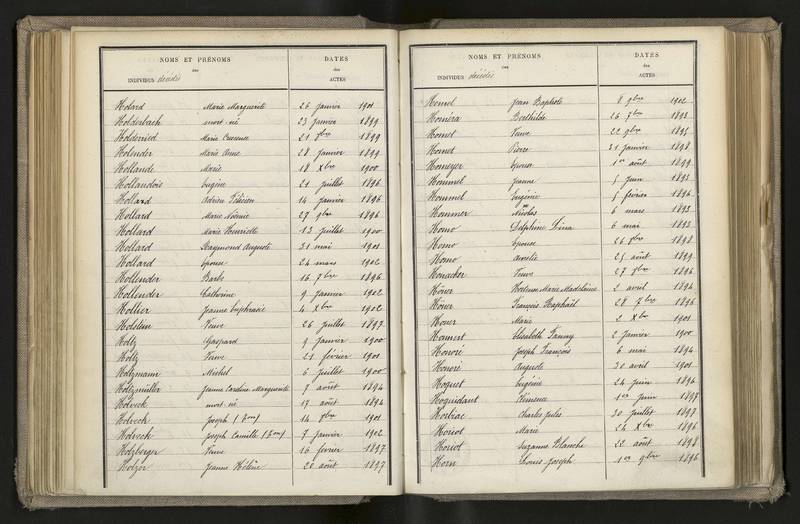 NOMS ET PRÉNOMS
des
INDIVIDUS décédés
DATES
des
ACTES
Holard Marie Marguerite 26 Janvier 1901
Holderbach mort-né 23 Janvier 1899
Holderried Marie 21 1899
Holender Marie Anne 28 Janvier 1899
Hollande Marie 18 Xbre 1900
Hollandois Eugène 21 Juillet 1896
Hollard Adrien Félicien 14 Janvier 1896
Hollard Marie Noémie 27 9bre 1896
Hollard Marie Henriette 13 Juillet 1900
Hollard Raymond Auguste 31 mai 1901
Hollard épouse 24 mars 1902
Hollender Barbe 16 7bre 1896
Hollender Catherine 9 Janvier 1902
Hollier Jeanne Euphrasie 4 Xbre 1902
Holstein Veuve 26 Juillet 1897
Holtz Gaspard 9 Janvier 1900
Holtz Veuve 21 février 1901
Holtzmann Michel 6 Juillet 1900
Holtzmüller Jeanne Caroline Marguerite 7 août 1894
Holveck mort-né 17 août 1894
Holveck Joseph 14 1901
Holveck Joseph Camille 7 Janvier 1902
Holzberger Veuve 16 février 1897
Holzer Jeanne Hélène 20 août 1897
NOMS ET PRÉNOMS
des
INDIVIDUS décédés
DATES
des
ACTES
Homel Jean Baptiste 8 9bre 1902
Homéra Berthilde 26 7bre 1893
Homet Veuve 22 9bre 1895
Homet Pierre 31 Janvier 1898
Homeyer épouse 1er août 1899
Hommel Jeanne 5 Juin 1893
Hommel Eugénie 5 février 1896
Hommer Nicolas 6 mars 1893
Homo Delphine 6 mai 1893
Homo épouse 26 1898
Homo Amélie 25 août 1899
Honacker Veuve 27 1896
Höner Hortense Marie Madeleine 2 avril 1894
Höner François Raphaël 28 7bre 1896
Honer Marie 2 Xbre 1901
Honnert Elisabeth Fanny 2 Janvier 1900
Honoré Joseph François 6 mai 1894
Honoré Auguste 30 avril 1901
Hoquet Eugénie 24 Juin 1896
Hoquidant Clémence 1er Juin 1897
Horbiac Charles Jules 30 Juillet 1897
Horiot Marie 24 Xbre 1896
Horiot Suzanne Blanche 22 août 1898
Horn Louis Joseph 1er 9bre 1896